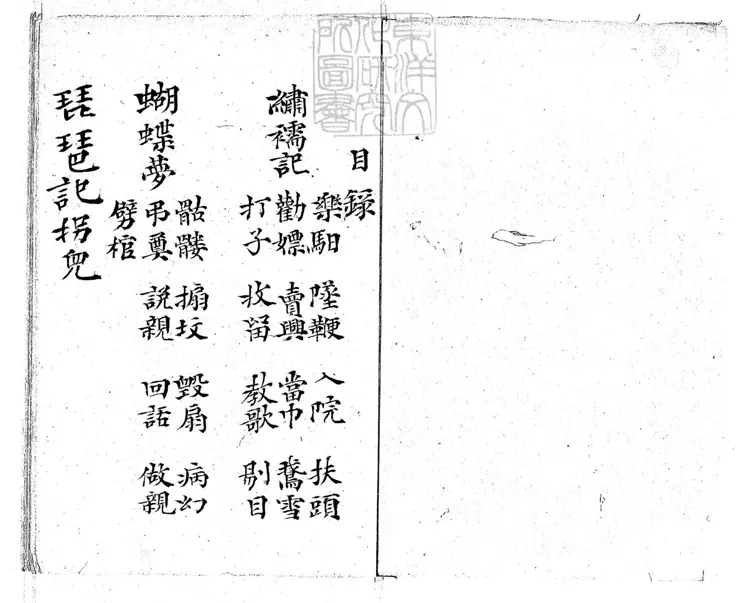 東洋文
化研究
所圖書
目錄
繡襦記
樂馹 墜鞭 入院 扶頭
勸嫖 賣興 當巾 鵞雪
打子 收留 教歌 剔目
蝴蝶夢
骷髏 搧坟 毀扇 病幻
吊奠 說親 回話 做親
劈棺
琵琶記拐兒